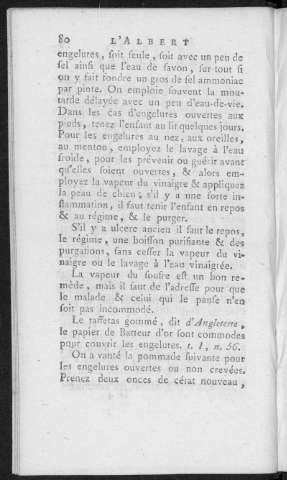 80 L'ALBERT
engelures, soit seule, soit avec un peu de
sel ainsi que l'eau de savon, sur-tout si
on y fait fondre un gros de sel ammoniac
par pinte. On emploie souvent la mou-
tarde délayée avec un peu d'eau-de-vie.
Dans les cas d'engelures ouvertes aux
pieds, tenez l'enfant au lit quelques jours.
Pour les engelures au nez, aux oreilles,
au menton, employez le lavage à l'eau
froide, pour les prévenir ou guérir avant
qu'elles soient ouvertes, & alors em-
ployez la vapeur du vinaigre & appliquez
la peau de chien; s'il y a une forte in-
flammation, il faut tenir l'enfant en repos
& au régime, & le purger.
S'il y a ulcere ancien il faut le repos,
le régime, une boisson purifiante & des
purgations, sans cesser la vapeur du vi-
naigre ou le lavage à l'eau vinaigrée.
La vapeur du soufre est un bon re-
mède, mais il faut de l'adresse pour que
le malade & celui qui le panse n'en
soit pas incommodé.
Le taffetas gommé, dit d'Angleterre,
le papier de Batteur d'or sont commodes
pour couvrir les engelures. t. I, n. 56.
On a vanté la pommade suivante pour
les engelures ouvertes ou non crevées.
Prenez deux onces de cérat nouveau,